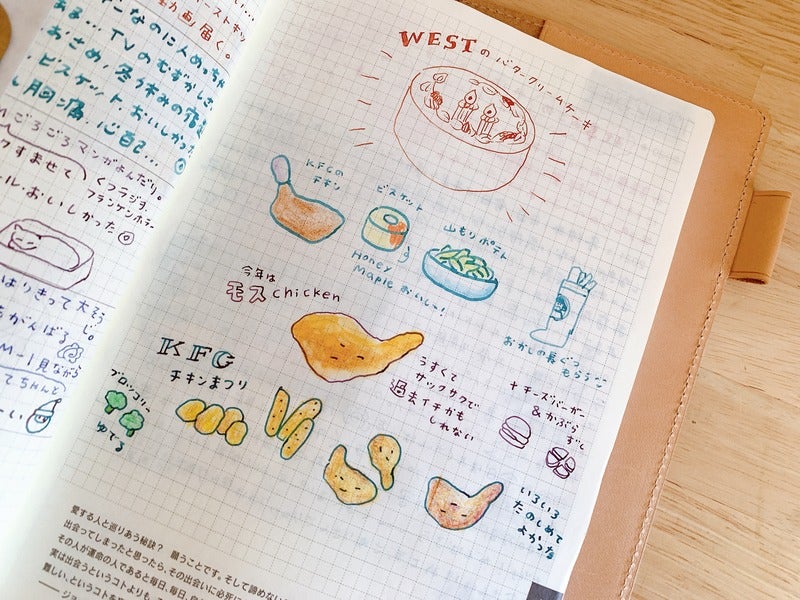 動画届く。
こなのにんめっちゃ
ある… TVのむずかしさ
おさめ、冬休みの宿
ビスケットおいしかった
胸痛、心自己…
ごろごろマンガよんだり。
クすませて
くつラジオ
フランケンホラー
ル・おいしかった
はりきって大そうじ。
がんばる
M-1見ながら
てちゃんと
WESTのバタークリームケーキ
KFCの
チキン
ビスケット
Honey
Mapleおいしー!
山もりポテト
おかしの長ぐつ
もらう
今年は
モスchicken
うすくて
サクサクで
過去イチかも
しれない
KFC
チキンまつり
ブロッコリー
ゆでる
+チーズバーガー
&かぶら
ずし
いろいろ
たのしめて
よかった
愛する人と巡りあう秘訣? 願うことです。そして諦めない
出会ってしまったと思ったら、その出会いに必死に
その人が運命の人であると毎日、毎日、
実は出会うというコトよりも、
難しい、というコトを
——ジョー